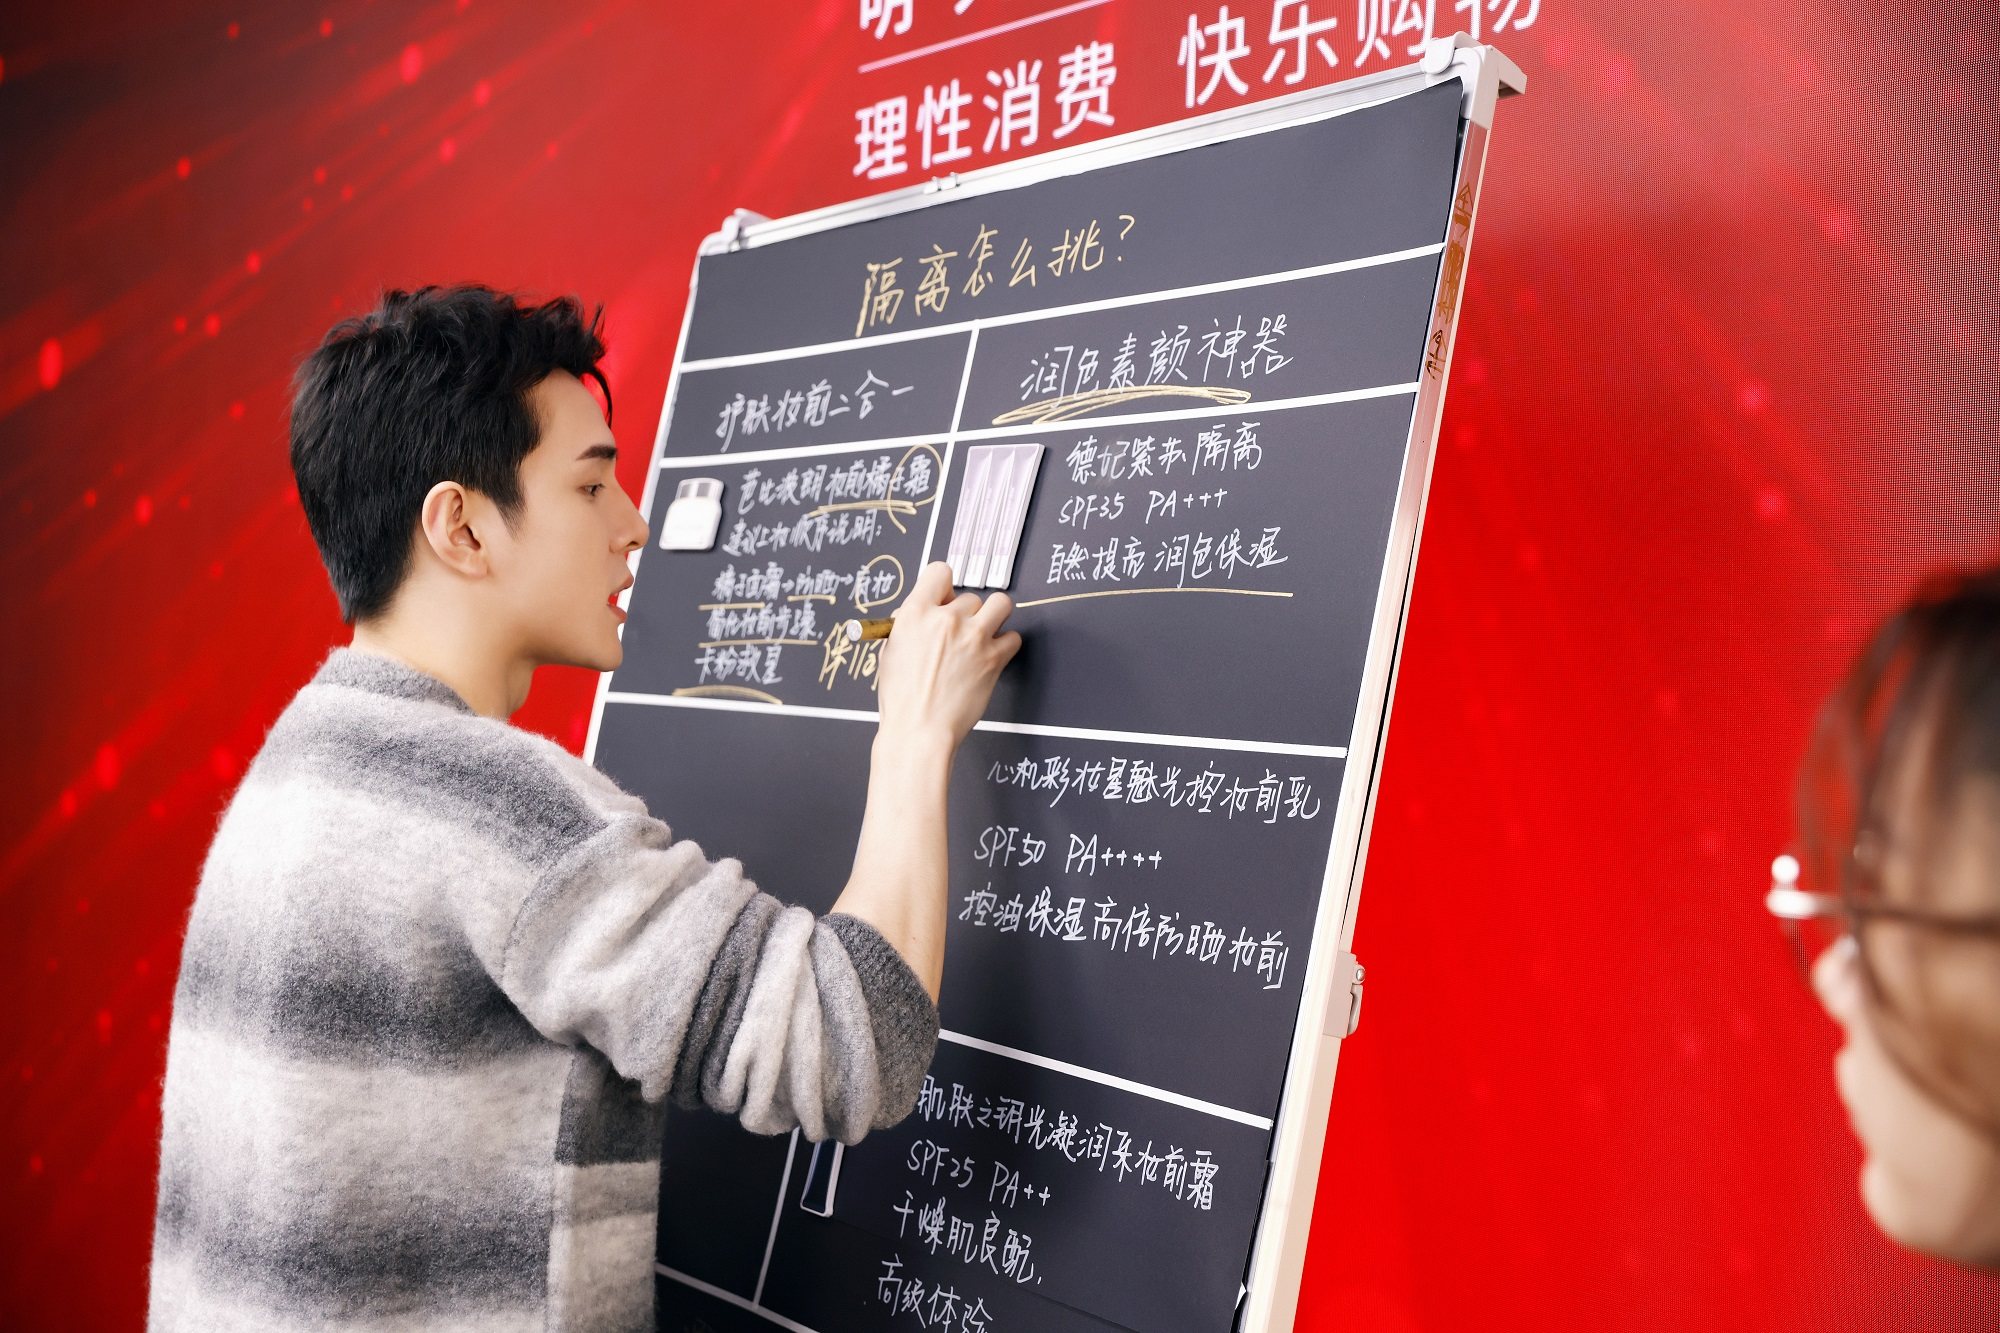 理性消费 快乐购物
隔离怎么挑?
护肤妆前二合一
润色素颜神器
芭比波朗妆前橘子霜
建议上妆顺序说明:
橘子面霜→防晒→底妆
简化妆前步骤,
卡粉救星
保湿
德妃紫苏隔离
SPF35 PA+++
自然提亮 润色保湿
心机彩妆星魅光控妆前乳
SPF50 PA++++
控油保湿高倍防晒妆前
肌肤之钥光凝润采妆前霜
SPF25 PA++
干燥肌良配,
高级体验